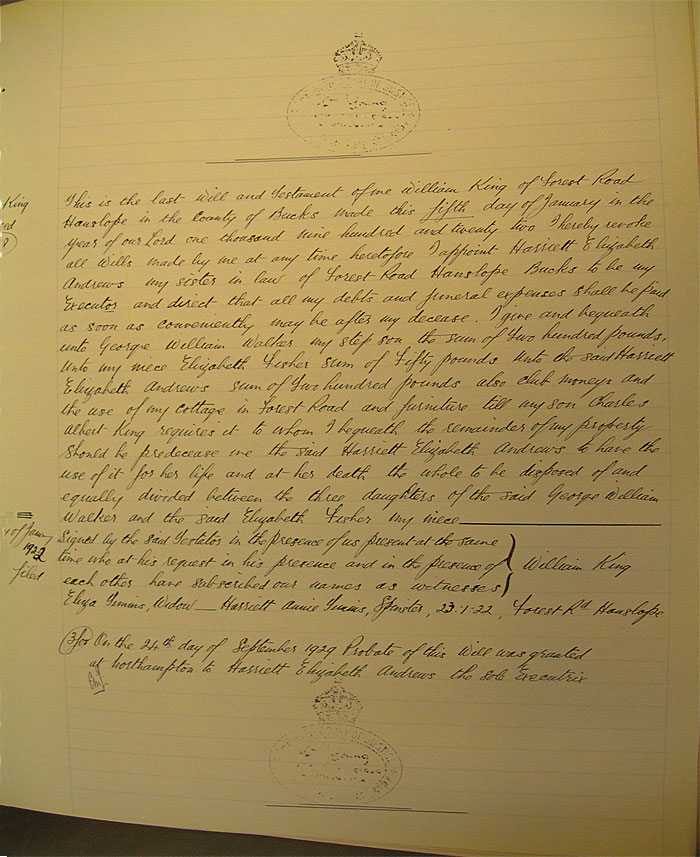 King
This is the last Will and Testament of me William King of Forest Road
Hanslope in the County of Bucks made this fifth day of January in the
year of our Lord one thousand nine hundred and twenty two I hereby revoke
all Wills made by me at any time heretofore I appoint Harriett Elizabeth
Andrews my sister in law of Forest Road Hanslope Bucks to be my
Executor and direct that all my debts and funeral expenses shall be paid
as soon as conveniently may be after my decease. I give and bequeath
unto George William Walker my step son the sum of Two hundred pounds,
Unto my niece Elizabeth Fisher sum of Fifty pounds Unto the said Harriett
Elizabeth Andrews sum of Two hundred pounds also club moneys and
the use of my cottage in Forest Road and furniture till my son Charles
Albert King requires it to whom I bequeath the remainder of my property
Should he predecease me the said Harriett Elizabeth Andrews to have the
use of it for her life and at her death the whole to be disposed of and
equally divided between the three daughters of the said George William
Walker and the said Elizabeth Fisher my niece
Signed by the said Testator in the presence of us present at the same
time who at his request in his presence and in the presence of } William King
each other have subscribed our names as witnesses
Eliza Timms, Widow — Harriett Annie Timms, Spinster, 23.1.22, Forest Rd Hanslope
1922
filed
On the 24th day of September 1929 Probate of this Will was granted
at Northampton to Harriett Elizabeth Andrews the sole Executrix